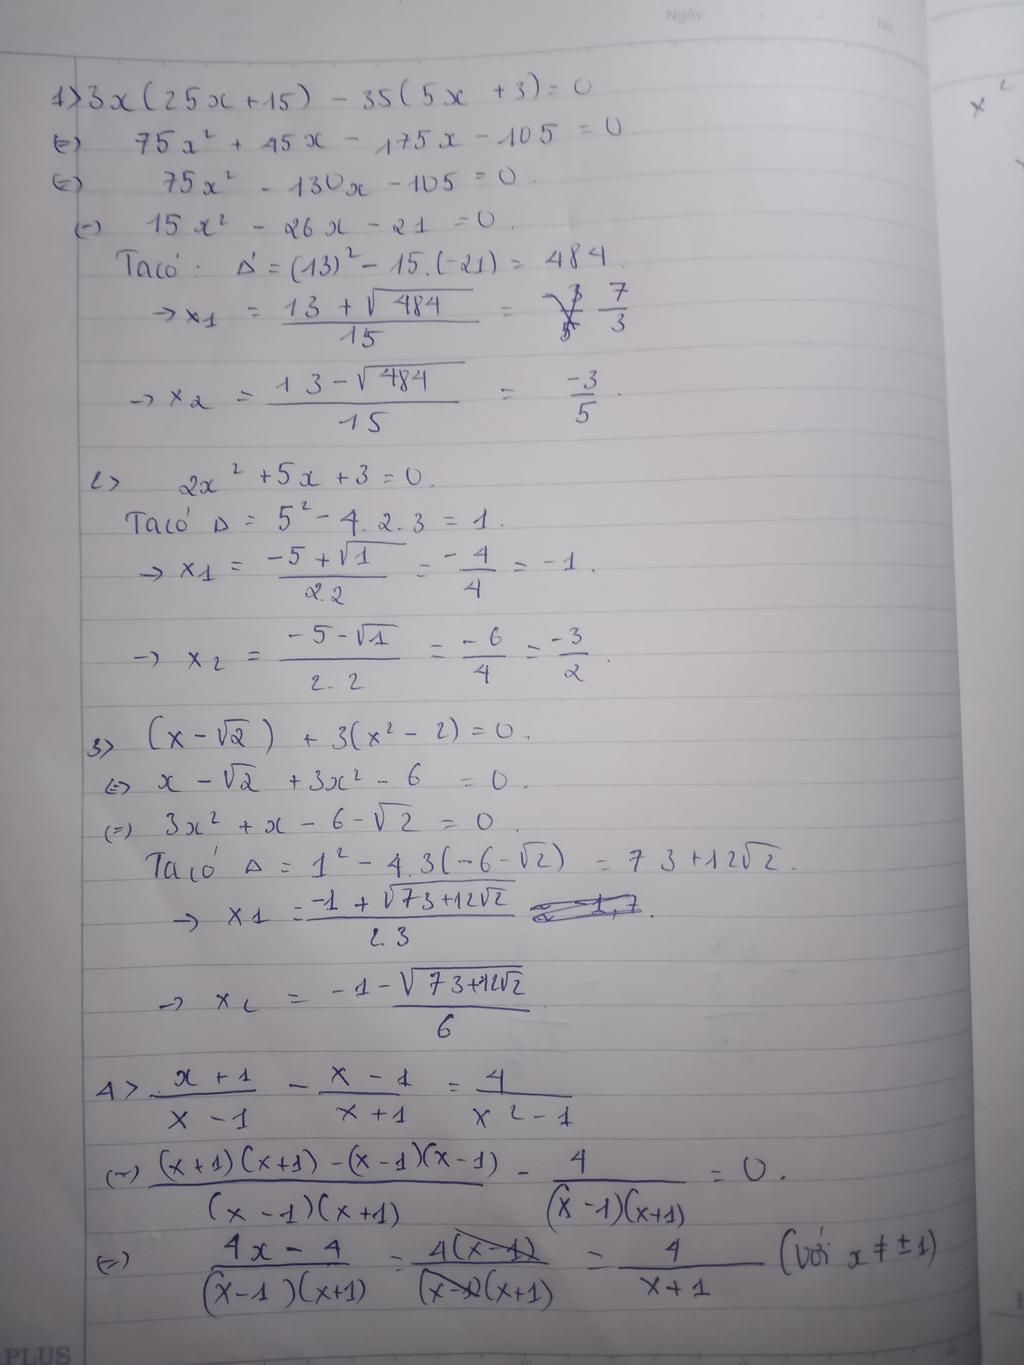 Ngày
No.
1> 3x(25x+15) - 35(5x +3)=0
(=) 75x² + 45x - 175x - 105 = 0.
(=) 75x² - 130x - 105 = 0.
(=) 15x² - 26x - 21 = 0.
Ta có: Δ' = (13)² - 15.(-21) = 484.
→ x1 = (13 + √484)/15 = 7/3
→ x2 = (13 - √484)/15 = -3/5.
2> 2x² + 5x + 3 = 0.
Ta có Δ = 5² - 4.2.3 = 1.
→ x1 = (-5 + √1)/2.2 = -4/4 = -1.
→ x2 = (-5 - √1)/2.2 = -6/4 = -3/2.
3> (x - √2) + 3(x² - 2) = 0.
(=) x - √2 + 3x² - 6 = 0.
(=) 3x² + x - 6 - √2 = 0.
Ta có Δ = 1² - 4.3(-6 - √2) = 73 + 12√2.
→ x1 = (-1 + √(73+12√2))/2.3
→ x2 = (-1 - √(73+12√2))/6.
4> (x+1)/(x-1) - (x-1)/(x+1) = 4/(x²-1)
(=) ((x+1)(x+1) - (x-1)(x-1))/((x-1)(x+1)) - 4/((x-1)(x+1)) = 0.
(=) (4x-4)/((x-1)(x+1)) = 4(x-1)/((x-1)(x+1)) = 4/(x+1) (với x ≠ ±1)
PLUS
x²